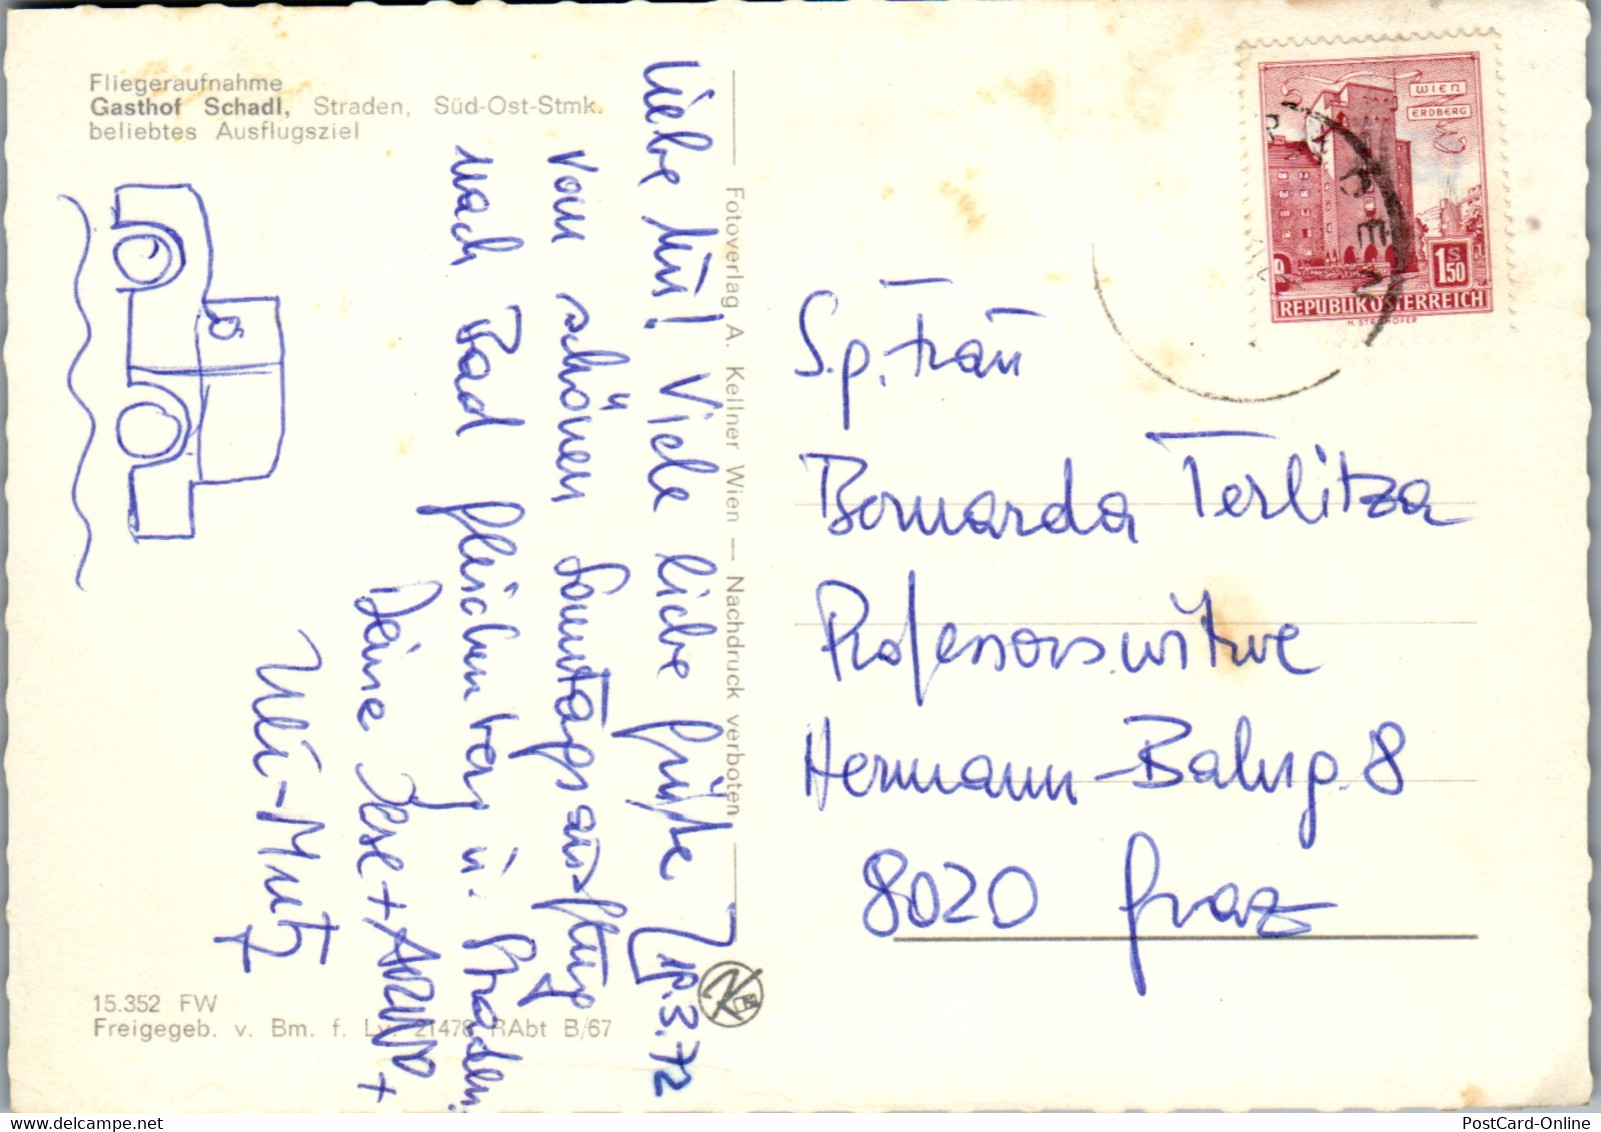 Fliegeraufnahme
Gasthof Schadl, Straden, Süd-Ost-Stmk.
beliebtes Ausflugsziel
Liebe Mū! Viele liebe Grüße
vom schönen Sonntagsausflug
nach Bad Gleichenberg ū. Straden.
Deine Ilse + ARNO +
Uli-Mutz
19.3.72
15.352 FW
Freigegeb. v. Bm. f. Lv. 21478 RAbt B/67
Fotoverlag A. Kellner Wien — Nachdruck verboten
WIEN
ERDBERG
1 S 50
REPUBLIK ÖSTERREICH
S.p. Frau
Bernarda Terlitza
Professorswitwe
Hermann-Bahrg. 8
8020 Graz
PostCard-Online